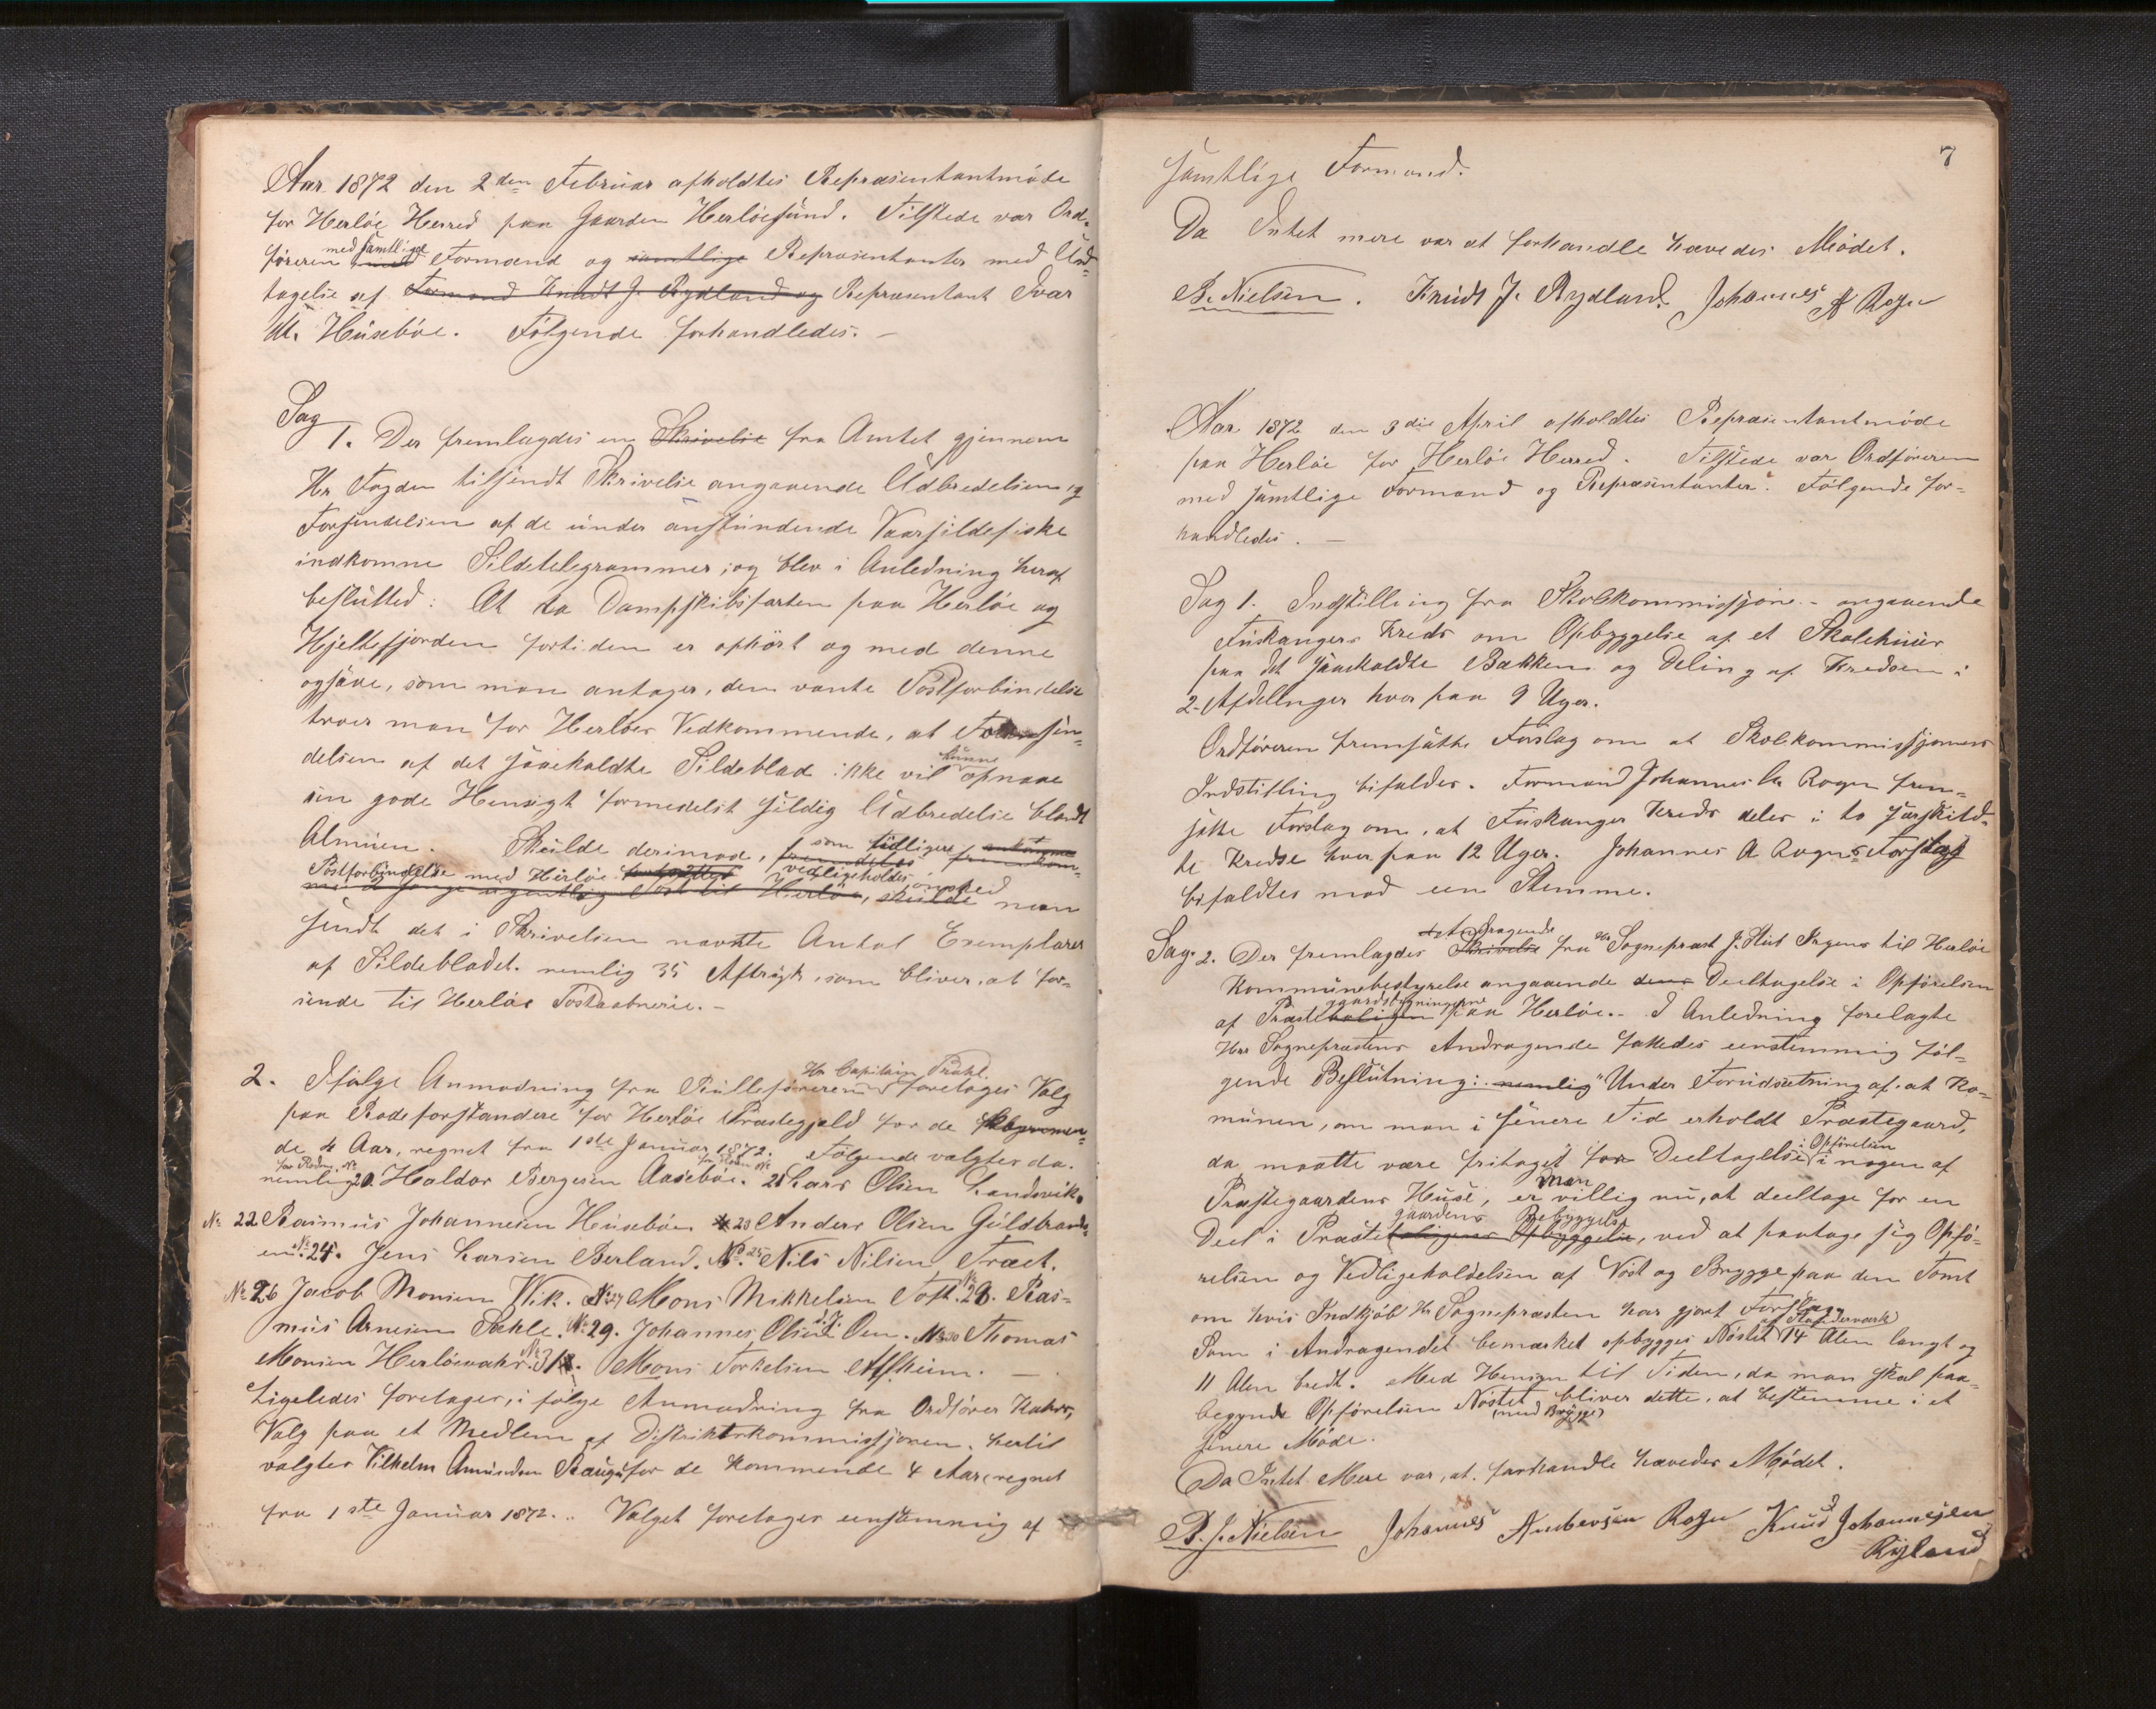 Aar 1872 den 2den Februar afholdtes Repræsentantmøde
for Herløe Herred paa Gaarden Herløesund. Tilstede var Ord-
føreren med samtlige Formænd og samtlige Repræsentanter med Und-
tagelse af Formand Knudt J. Rydland og Repræsentant Ivar
M. Husebøe. Følgende forhandledes. –
Sag
1. Der fremlagdes en Skrivelse fra Amtet gjennem
Hr Fogden tilsendt Skrivelse angaaende Udbredelsen og
Forsendelsen af de under anstundende Vaarsildefiske
indkomne Sildetelegrammer; og blev i Anledning heraf
beslutted: At da Dampskibsfarten paa Herløe og
Hjeltefjorden fortiden er ophørt og med denne
ogsaae, som man antager, den vante Postforbindelse
troer man for Herløes Vedkommende, at Forsen-
delsen af det saaekaldte Sildeblad ikke vil kunne opnaae
sin gode Hensigt formedelst sildig Udbredelse blandt
Almuen. Skulde derimod, som tidligere
Postforbindelse med Herløe vedligeholdes ønsked man
med Gange ugentlig Post til Herløe, skulde
sendt det i Skrivelsen nævnte Antal Exemplarer
af Sildebladet. nemlig 35 Aftryk, som bliver, at for-
sende til Herløe Postaabnerie. –
2. Ifølge Anmodning fra Rulleføreren Hr Capitain Prahl foretoges Valg
paa Rodeforstandere for Herløe Præstegjeld for de
de 4 Aar, regnet fra 1ste Januar 1872. Følgende valgtes da.
nemlig for Roden No 20. Haldor Bergesen Aasebøe. for Roden No 21 Lars Olsen Landsvik.
No 22 Rasmus Johannesen Husebøe 23 Anders Olsen Guldbrands-
en No 24. Jens Larsen Berland. No 25 Nils Nilsen Træet.
No 26 Jacob Monsen Wik. No 27 Mons Mikkelsen Toft. No 28. Ras-
mus Arnesen Sahle. No 29. Johannes Olsen Oen. No 30 Thomas
Monsen Herløevahr. No 31. Mons Torkelsen Alfheim. –
Ligeledes foretages, i følge Anmodning fra Ordfører Kahrs,
Valg paa et Medlem af Distriktskommissjonen. hertil
valgtes Vilhelm Amundsen Raugn for de kommende 4 Aar, regnet
fra 1ste Januar 1872. Valget foretages enstemmig af
7
samtlige Formænd.
Da Intet mere var at forhandle hævedes Mødet.
B. Nielsen. Knudt J. Rydland. Johannes A Rogn
Aar 1872 den 3die April afholdtes Repræsentantmøde
paa Herløe for Herløe Herred. Tilstede var Ordføreren
med samtlige Formænd og Repræsentanter. Følgende for-
handledes. –
Sag 1. Indstilling fra Skolkommissjone – angaaende
Fuskangers Kreds om Opbyggelse af et Skolehuus
paa det saaekaldte Bakken og Deling af Kredsen i
2 Afdelinger hver paa 9 Uger.
Ordføreren fremsatte Forslag om at Skolkommissjonens
Indstilling bifaldes. Formand Johannes A. Rogn frem-
satte Forslag om, at Fuskanger Kreds deles i to særskild-
te Kredse hver paa 12 Uger. Johannes A Rogns Forslag
bifaldtes mod een Stemme.
Sag. 2. Der fremlagdes et Andragende Skrivelse fra Hr Sogneprest J. Stub Irgens til Herløe
Kommunebestyrelse angaaende dens Deeltagelse i Opførelsen
af Præstegaardsbygningerne paa Herløe. – I Anledning forelagte
Herr Sognepræstens Andragende fattedes eenstemmig føl-
gende Beslutning: nemlig "Under Forudsætning af at Ko-
munen, om man i senere Tid erholdt Præstegaard,
da maatte være fritaget for Deeltagelse i Opførelsen i nogen af
Præstegaardens Huse, er man villig nu, at deeltage for en
Deel i Præstegaardens Bebyggelse Opbyggelse, ved at paatage sig Opfø-
relsen og Vedligeholdelsen af Nøst og Brygge paa den Tomt
om hvis Indkjøb Hr. Sognepræsten har gjort Forslag.
Som i Andragendet bemærket opbygges Nøstet af Stavverværk 14 Alen langt og
11 Alen bredt. Med Hensyn til Tiden, da man skal paa-
begynde Opførelsen Nøstet (med Brygge) bliver dette, at bestemme i et
senere Møde.
Da Intet Mere var, at forhandle hævedes Mødet.
B. J. Nielsen Johannes Andersen Rogn Knud Johannesen
Ryland